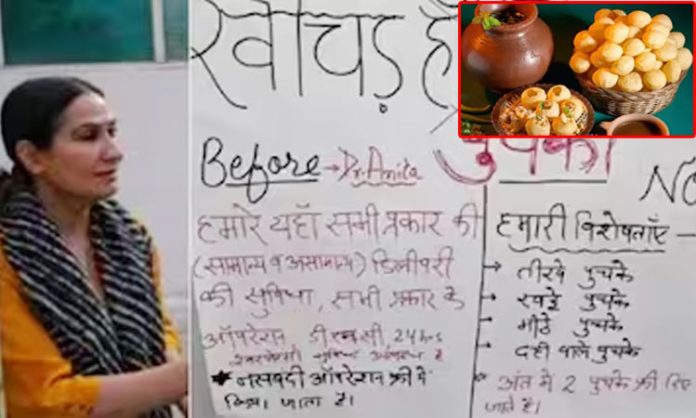 खीचड़ हाँ
पुचका
Before → Dr. Anita
हमारे यहाँ सभी प्रकार की
(सामान्य व असामान्य) डिलीवरी
की सुविधा, सभी प्रकार के
ऑपरेशन, डी.एन.सी, 24 hrs
सुविधा उपलब्ध है
★ नसबंदी ऑपरेशन फ्री में
किया जाता है।
No
हमारी विशेषताएँ
→ तीखे पुचके
→ खट्टे पुचके
→ मीठे पुचके
→ दही वाले पुचके
* अंत में 2 पुचके फ्री दिए
जाते है।